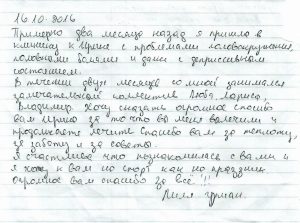 16.10.2016
Примерно два месяца назад я пришла в
клинику к Ирине с проблемами головокружения,
головными болями и даже с депрессивным
состоянием.
В течении двух месяцев со мной занимался
замечательный коллектив Люба, Лариса,
Владимир. Хочу сказать огромное спасибо
вам Ирина за то что вы меня вылечили и
продолжаете лечить спасибо вам за теплоту,
за заботу и за советы.
Я счастлива что познакомилась с вами и
я хожу к вам на спорт как на праздник
огромное вам спасибо за всё!!!
Лиля